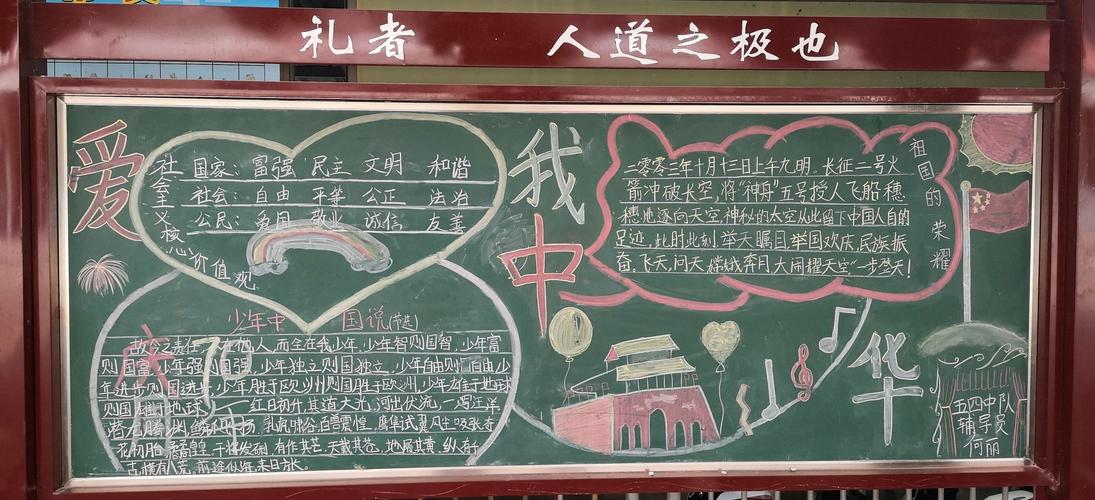 礼者 人道之极也
爱我中华
社会主义核心价值观
国家：富强 民主 文明 和谐
社会：自由 平等 公正 法治
公民：爱国 敬业 诚信 友善
少年中国说(节选)
故今之责任 不在他人,而全在我少年,少年智则国智,少年富
则国富,少年强则国强,少年独立则国独立,少年自由则 自由少
年进步则国进步,少年胜于欧洲则国胜于欧洲,少年雄于地球
则国雄于地球 红日初升,其道大光,河出伏流,一泻汪洋
潜龙腾渊 鳞爪飞扬 乳虎啸谷,百兽震惶,鹰隼试翼 风尘吸张 奇
花初胎 矞矞皇皇 干将发硎,有作其芒,天戴其苍,地履其黄,纵有千
古,横有八荒,前途似海,来日方长。
祖国的荣耀
二零零三年十月十三日上午九明,长征二号火
箭冲破长空,将"神舟"五号授人飞船穗
穗地逐向天空,神秘的太空从此留下中国人自的
足迹,此时此刻,举天瞩目,举国欢庆,民族振
奋,飞天,问天,嫦娥奔月,大闹耀天空"一步登天!
五四中队
辅导员
何丽